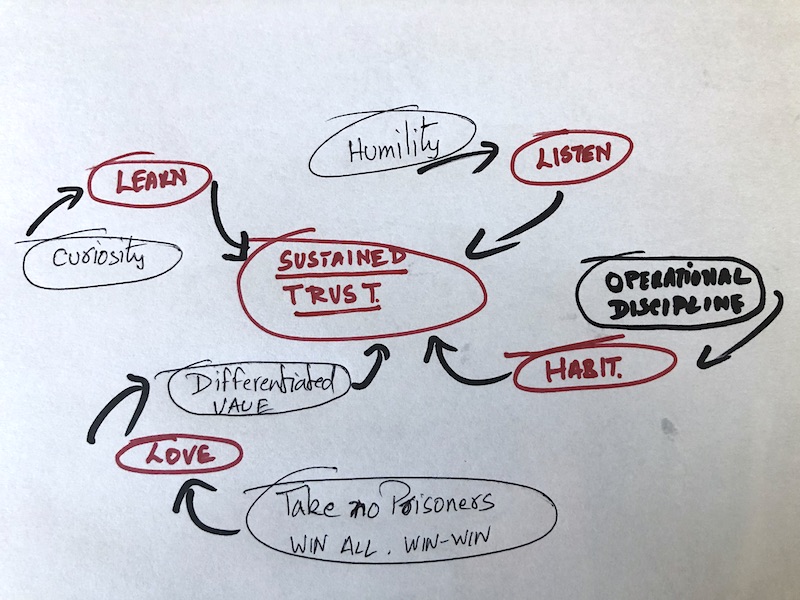 Humility
LISTEN
LEARN
Curiosity
SUSTAINED
TRUST.
OPERATIONAL
DISCIPLINE
HABIT.
Differentiated
VALUE
LOVE
Take no Prisoners
WIN ALL. WIN-WIN